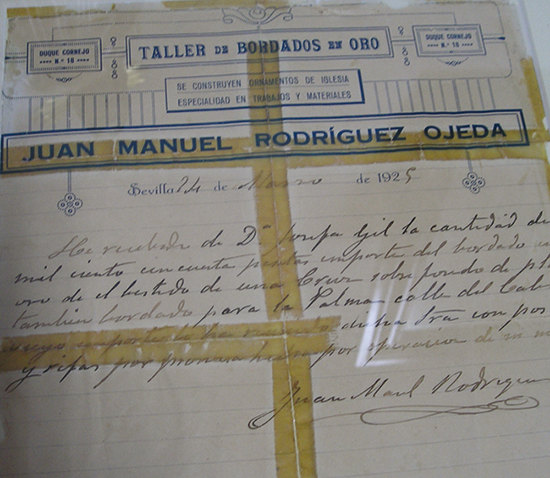 DUQUE CORNEJO
N.º 18
TALLER DE BORDADOS EN ORO
DUQUE CORNEJO
N.º 18
SE CONSTRUYEN ORNAMENTOS DE IGLESIA
ESPECIALIDAD EN TRABAJOS Y MATERIALES
JUAN MANUEL RODRÍGUEZ OJEDA
Sevilla 24 de Marzo de 1925
He recibido de Dª Josefa Gil la cantidad de
mil ciento cincuenta pesetas importe del bordado
oro de el bestido de una Cruz sobre fondo de
tambien bordado para la Palma calle del
cuyo importe lo ha reunido dicha Sra con
y rifas por promesa hecha por operacion de su
Juan Manl Rodrigue